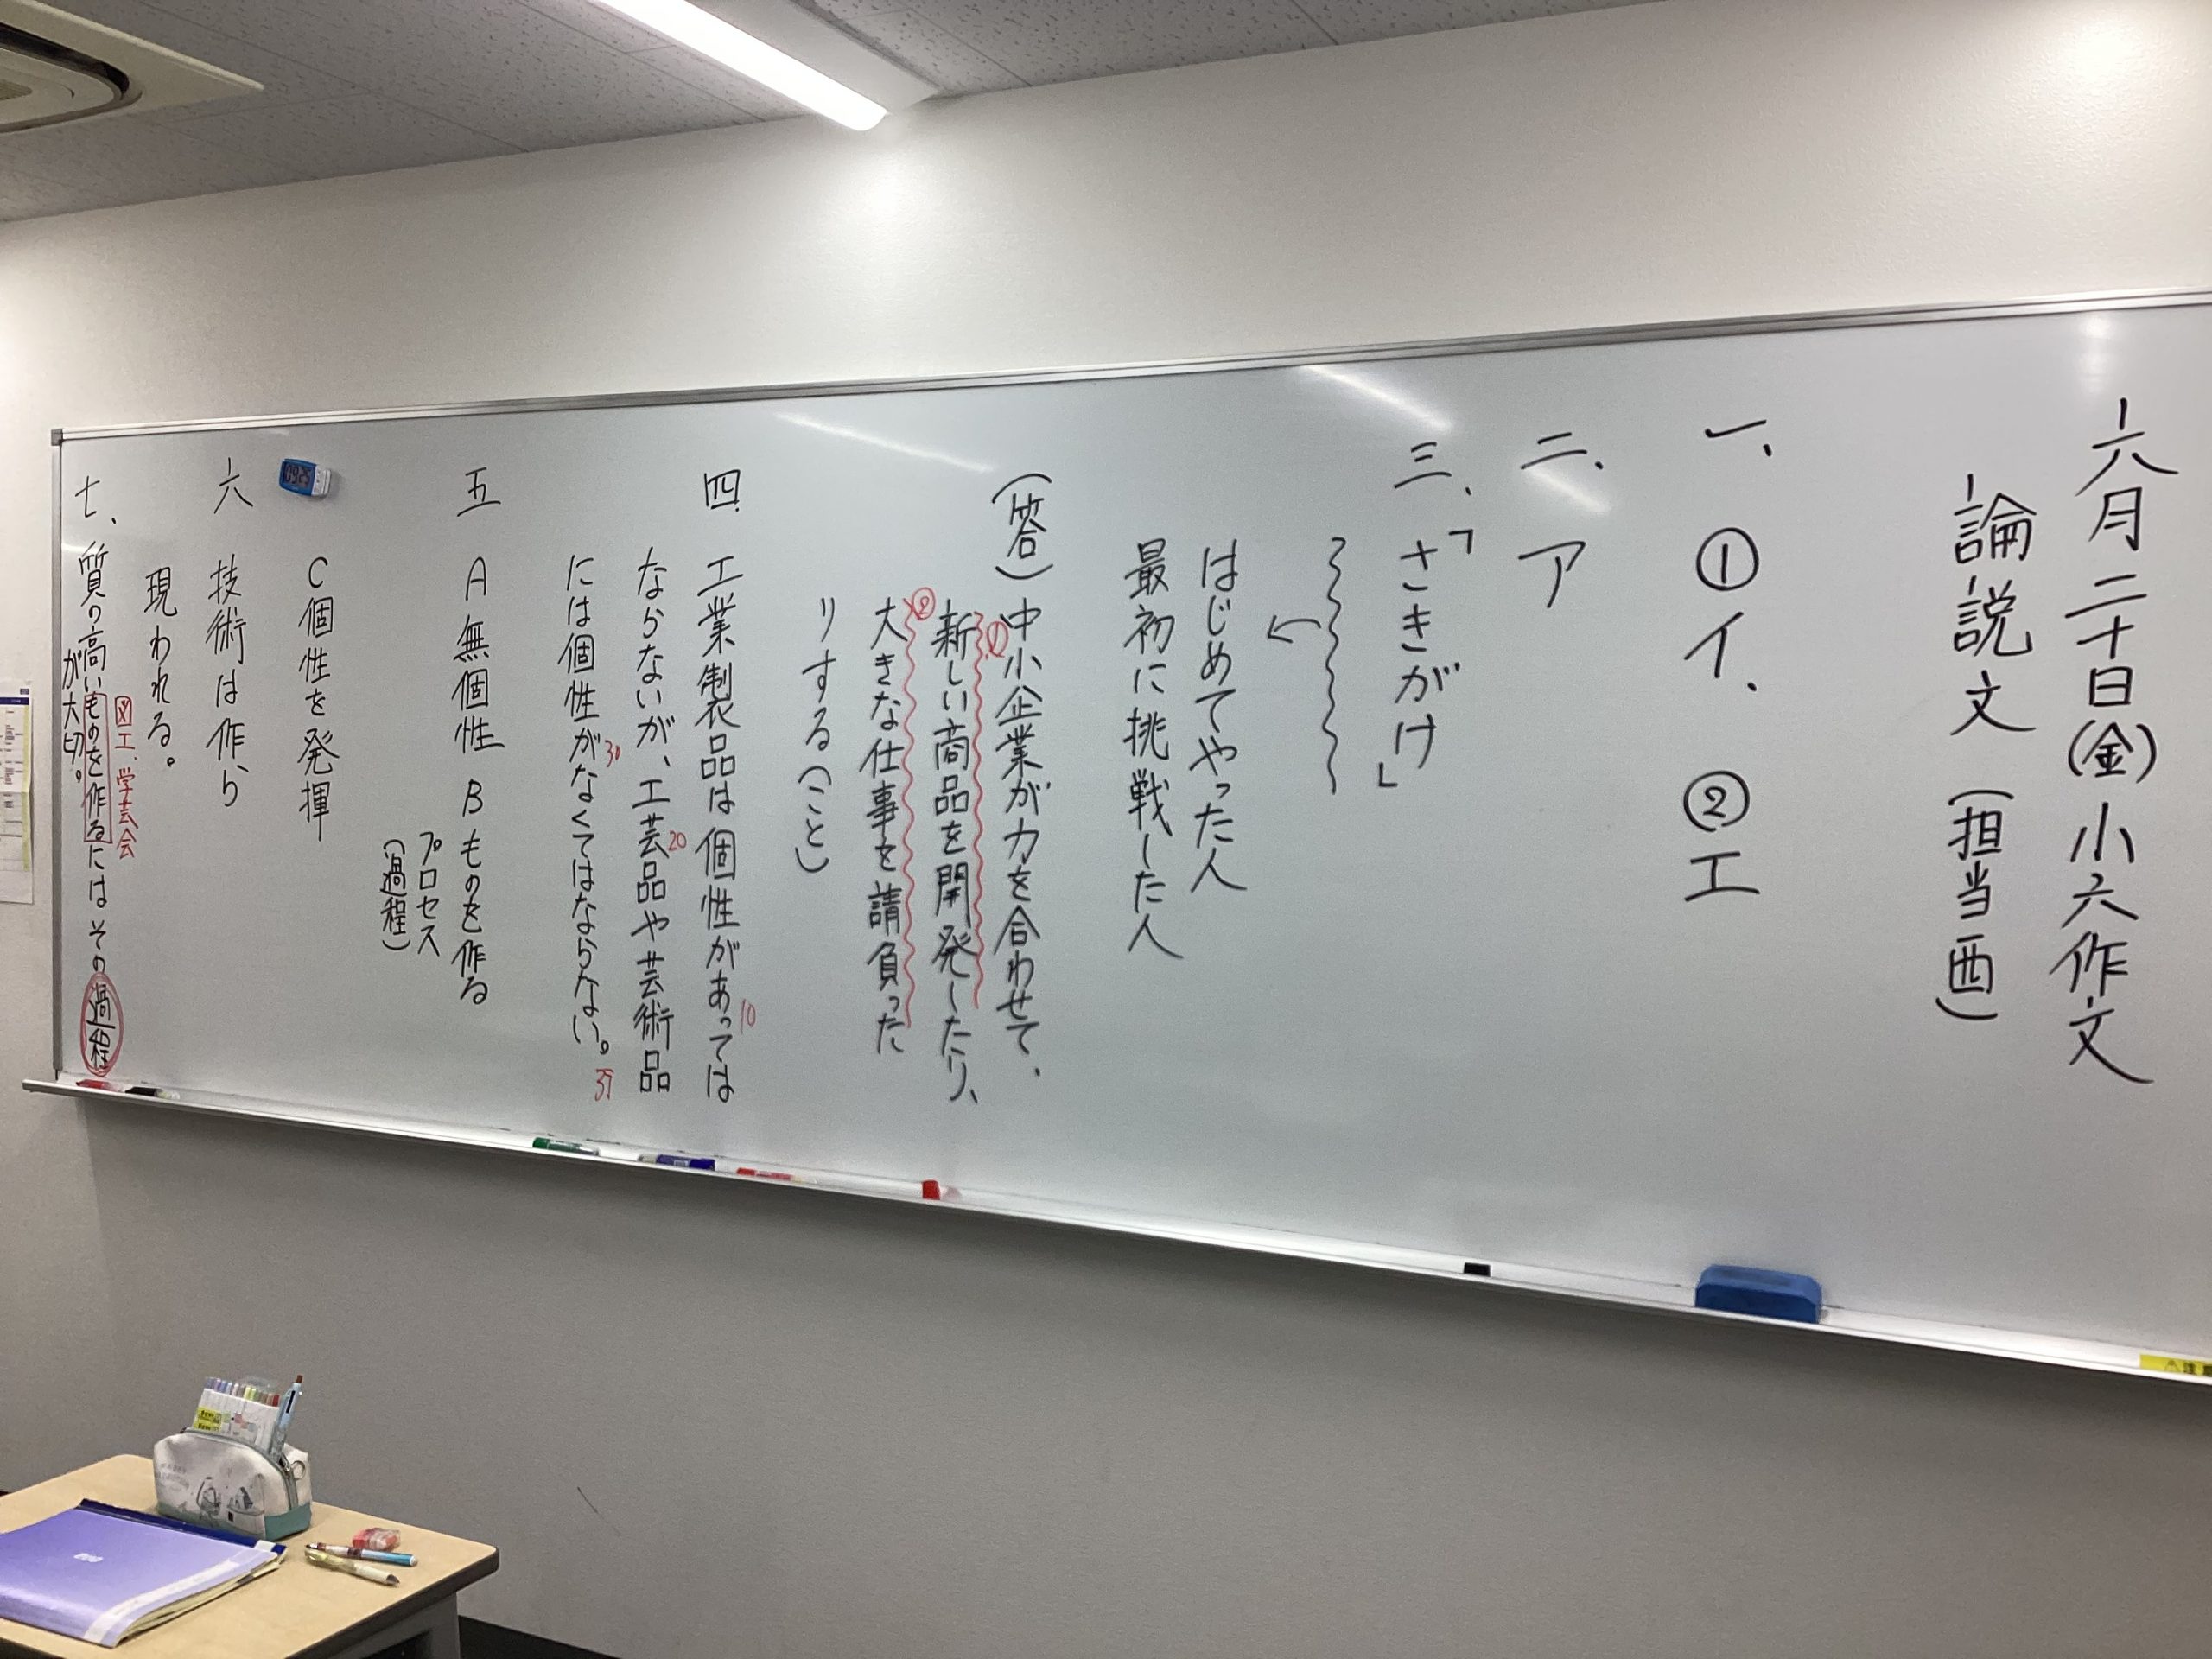 六月二十日(金)小六作文
論説文(担当西)
一、①イ、②エ
二、ア
三、「さきがけ」
はじめてやった人
最初に挑戦した人
(答)中小企業が力を合わせて、
①
新しい商品を開発したり、
②
大きな仕事を請負った
りする(こと)
四、工業製品は個性があっては
10
ならないが、工芸品や芸術品
20
には個性がなくてはならない。
30
35
五 A無個性 Bものを作る
プロセス
(過程)
C個性を発揮
六 技術は作ら
現われる。
図工、学芸会
七、質の高いものを作るにはその過程
が大切。
注意